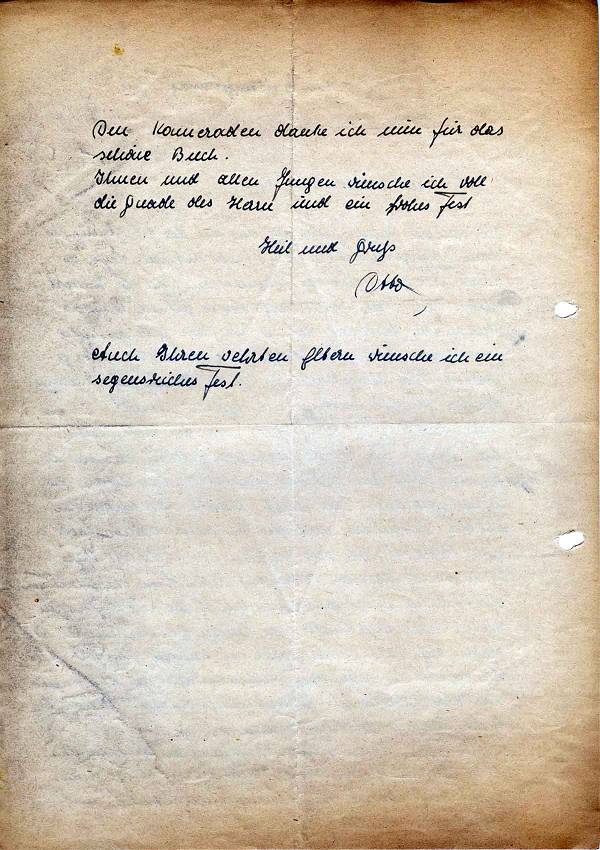 Den Kameraden danke ich nun für das
schöne Buch.
Ihnen und allen Jungen wünsche ich voll
die Gnade des Herrn und ein frohes Fest
Heil und Gruß
Otto
Auch Ihren Eltern wünsche ich ein
segensreiches Fest.